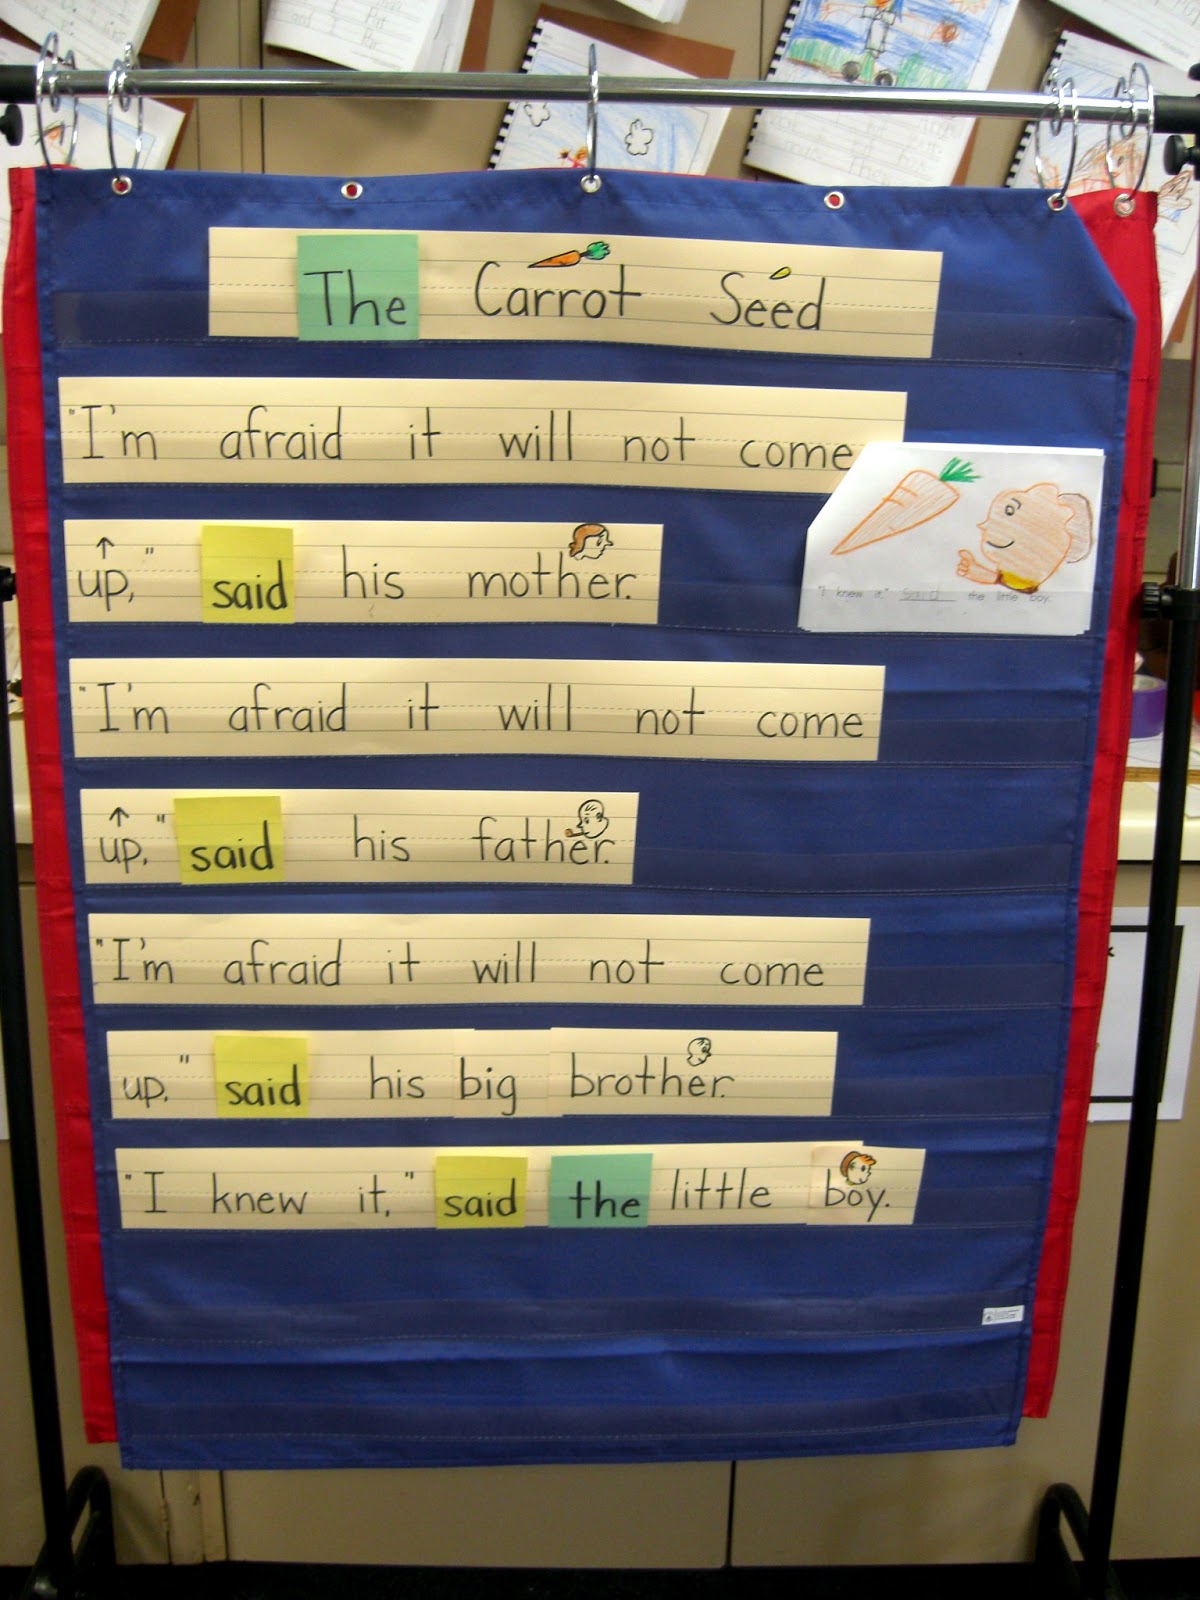 The Carrot Seed
"I'm afraid it will not come
up," said his mother.
"I knew it." said the little boy.
"I'm afraid it will not come
up," said his father.
"I'm afraid it will not come
up," said his big brother.
"I knew it," said the little boy.